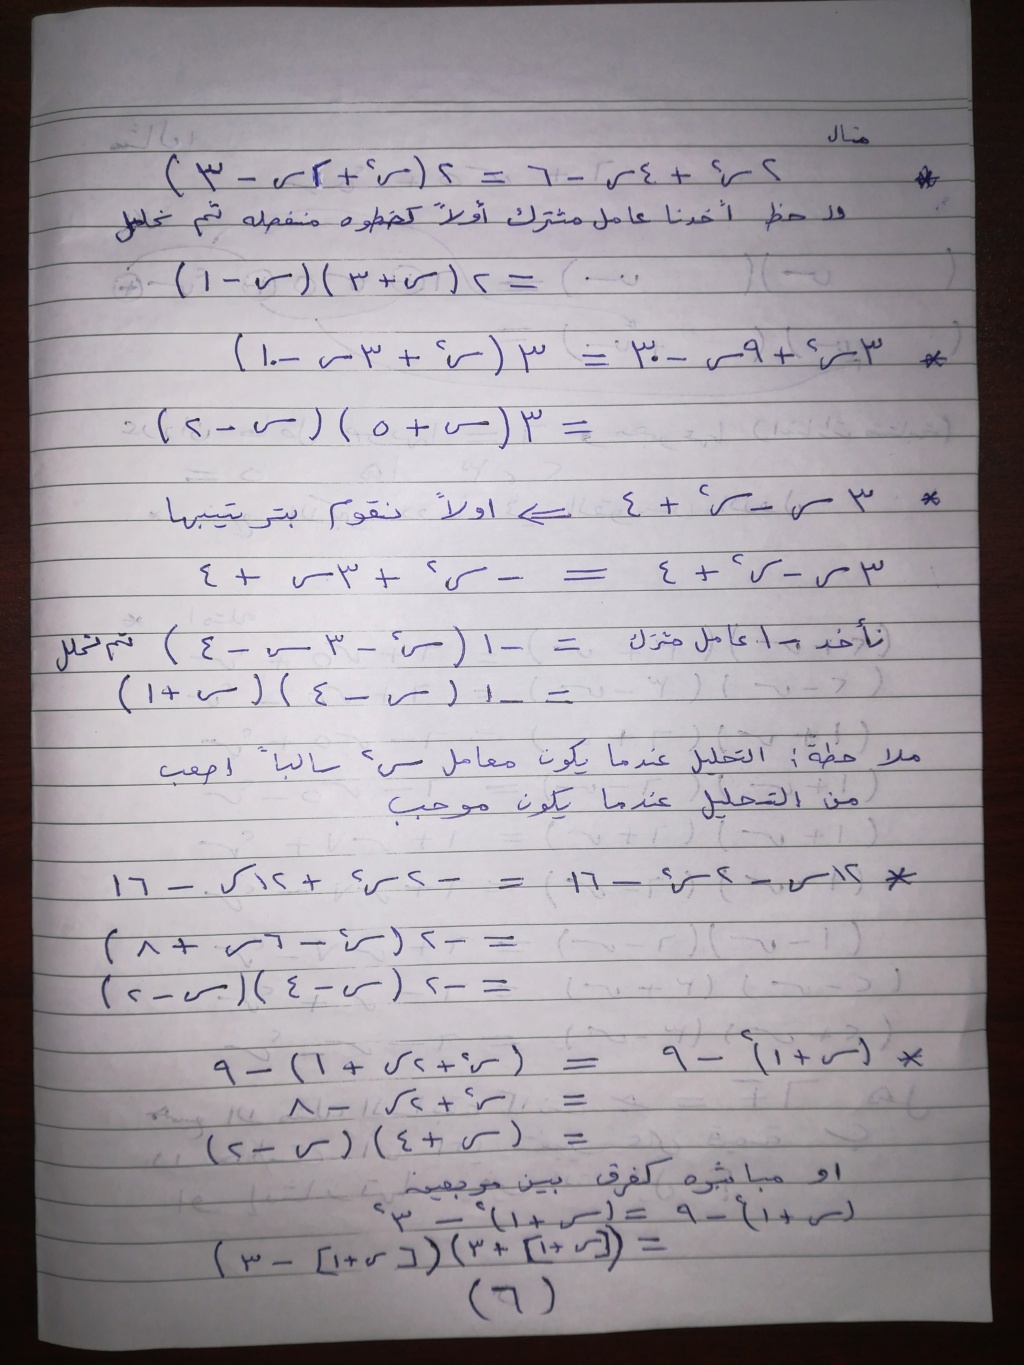 مثال
* ٢س² + ٤س - ٦ = ٢(س² + ٢س - ٣)
ولاحظ أخدنا عامل مشترك أولاً كخطوه منفصله ثم نحلل
= ٢(س+٣)(س-١)
* ٣س² + ٩س - ٣٠ = ٣(س² + ٣س - ١٠)
= ٣(س + ٥)(س - ٢)
* ٣س - س² + ٤ ⇐ اولاً نقوم بترتيبها
٣س - س² + ٤ = -س² + ٣س + ٤
نأخد -١ عامل مشترك = -١(س² - ٣س - ٤) ثم نحلل
= -١(س - ٤)(س + ١)
ملاحظة: التحليل عندما يكون معامل س² سالباً اصعب
من التحليل عندما يكون موجب
* ١٢س - ٢س² - ١٦ = -٢س² + ١٢س - ١٦
= -٢(س² - ٦س + ٨)
= -٢(س - ٤)(س - ٢)
* (س+١)² - ٩ = (س² + ٢س + ١) - ٩
= س² + ٢س - ٨
= (س + ٤)(س - ٢)
او مباشره كفرق بين مربعين
(س+١)² - ٩ = (س+١)² - ٣²
= ([س+١] + ٣)([س+١] - ٣)
(٦)